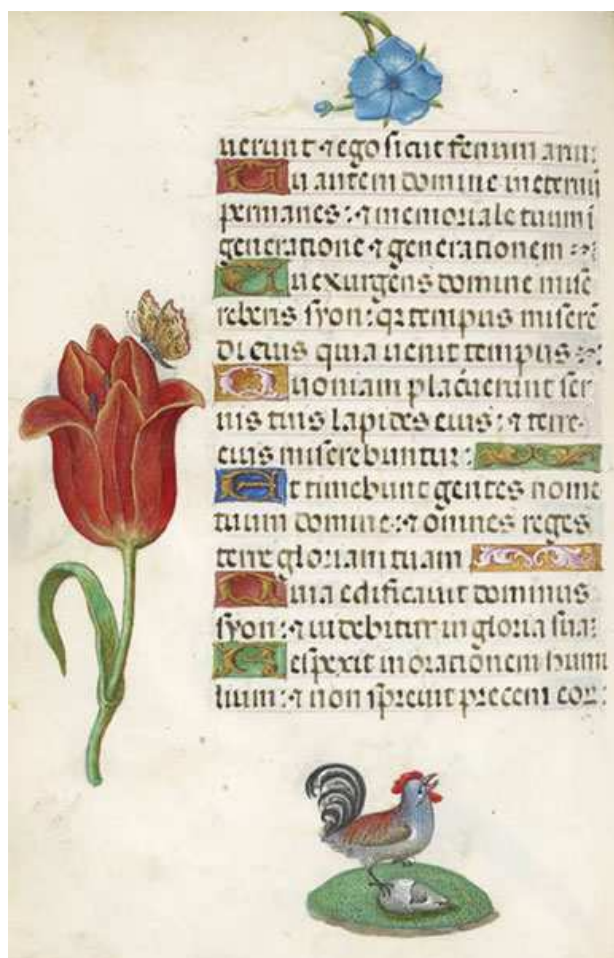 uerunt ⁊ ego sicut fenum arui:
Tu autem domine in eternū
permanes: ⁊ memoriale tuum ī
generatione ⁊ generationem :
Tu exurgens domine mise
reberis syon: qr tempus miserē
di eius quia uenit tempus :
Quoniam placuerunt ser
uis tuis lapides eius: ⁊ terre
eius miserebuntur:
Et timebunt gentes nomē
tuum domine: ⁊ omnes reges
terre gloriam tuam
Quia edificauit dominus
syon: ⁊ uidebitur in gloria sua:
Respexit in orationem humi
lium: ⁊ non spreuit precem eor: